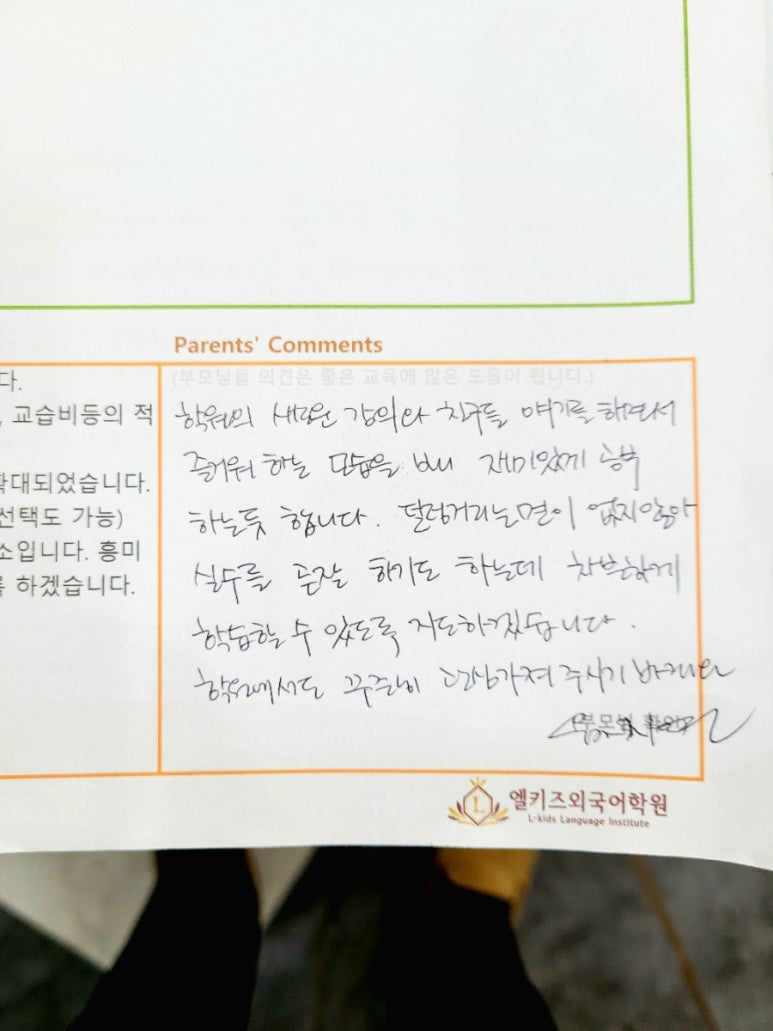 Parents' Comments
(부모님들 의견은 좋은 교육에 많은 도움이 됩니다.)
다.
, 교습비등의 적
확대되었습니다.
선택도 가능)
소입니다. 흥미
록 하겠습니다.
학원의 새로운 강의와 친구들 얘기를 하면서
즐거워 하는 모습을 보니 재미있게 공부
하는듯 합니다. 덜렁거리는면이 없지않아
실수를 종잘 하기도 하는데 차분하게
학습할 수 있도록 지도하겠습니다.
학원에서도 꾸준히 관심가져 주시기 바래요
(부모님 확인)
엘키즈외국어학원
L-kids Language Institute